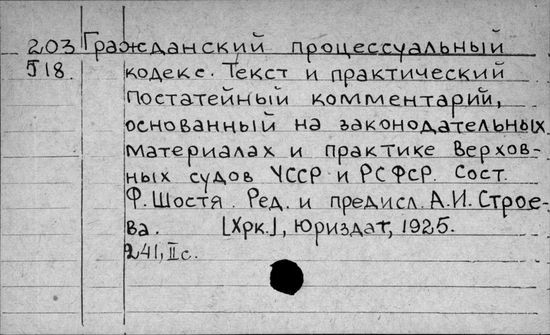 203 Гражданский процессуальный
J18. кодекс. Текст и практический
постатейный комментарий,
основанный на законодательных
материалах и практике Верхов-
ных судов УССР и РСФСР. Сост.
Ф. Шостя. Ред. и предисл. А.И. Строе-
ва. [Хрк.], Юриздат, 1925.
241, II с.